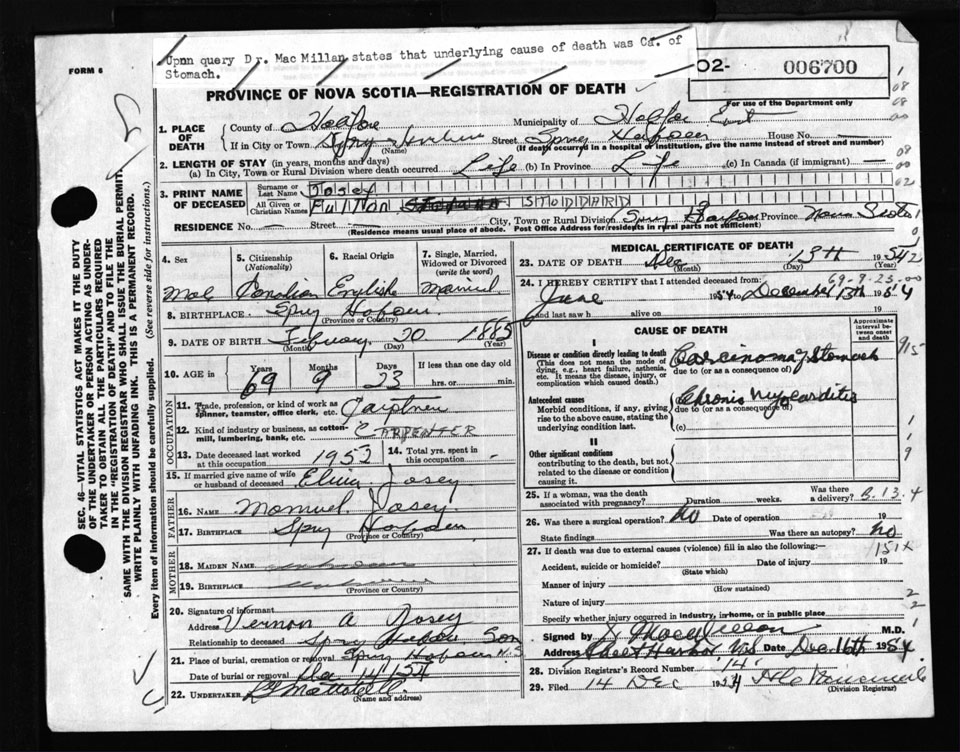 Upnn query Dr. Mac Millan states that underlying cause of death was Ca. of
Stomach.
FORM 6
O2- 006700
PROVINCE OF NOVA SCOTIA—REGISTRATION OF DEATH
For use of the Department only
1. PLACE OF DEATH
County of Halifax Municipality of Halifax East
If in City or Town Spry Harbour (Name) Street Spry Harbour House No. —
(If death occurred in a hospital or institution, give name instead of street and number)
2. LENGTH OF STAY (in years, months and days)
(a) In City, Town or Rural Division where death occurred Life (b) In Province Life (c) In Canada (if immigrant) —
3. PRINT NAME OF DECEASED
Surname or Last Name Josey
All Given or Christian Names Fulton STODDARD
RESIDENCE No. — Street — City, Town or Rural Division Spry Harbour Province Nova Scotia
(Residence means usual place of abode. Post Office Address for residents in rural parts not sufficient)
4. Sex
5. Citizenship (Nationality)
6. Racial Origin
7. Single, Married, Widowed or Divorced (write the word)
Male Canadian English Married
8. BIRTHPLACE Spry Harbour
(Province or Country)
9. DATE OF BIRTH February 20 1885
(Month) (Day) (Year)
10. AGE in Years Months Days If less than one day
69 9 23 hrs. or min.
OCCUPATION
11. Trade, profession, or kind of work as spinner, teamster, office clerk, etc.
12. Kind of industry or business, as cotton-mill, lumbering, bank, etc. CARPENTER
13. Date deceased last worked at this occupation 1952
14. Total yrs. spent in this occupation -
15. If married give name of wife or husband of deceased Josey
FATHER
16. NAME Josey
17. BIRTHPLACE Spry Harbour
(Province or Country)
MOTHER
18. MAIDEN NAME unknown
19. BIRTHPLACE unknown
(Province or Country)
20. Signature of informant Vernon A Josey
Address Spry Harbour
Relationship to deceased Son
21. Place of burial, cremation or removal Spry Harbour N.S.
Date of burial or removal Dec 14 / 54
22. UNDERTAKER
(Name and address)
MEDICAL CERTIFICATE OF DEATH
23. DATE OF DEATH Dec 13th 1954
(Month) (Day) (Year)
69-9-23-00
24. I HEREBY CERTIFY that I attended deceased from
June 1954 to December 13th 1954
and last saw h alive on 19
CAUSE OF DEATH
Approximate interval between onset and death
I
Disease or condition directly leading to death
(This does not mean the mode of dying, e.g., heart failure, asthenia, etc. It means the disease, injury, or complication which caused death.)
Carcinoma of Stomach
due to (or as a consequence of)
Antecedent causes
Morbid conditions, if any, giving rise to the above cause, stating the underlying condition last.
Chronic myocarditis
due to (or as a consequence of)
(c)
II
Other significant conditions
contributing to the death, but not related to the disease or condition causing it.
25. If a woman, was the death associated with pregnancy? Duration weeks. Was there a delivery?
B.13.4
26. Was there a surgical operation? no Date of operation 19
State findings Was there an autopsy? no
151X
27. If death was due to external causes (violence) fill in also the following:—
Accident, suicide or homicide? (State which) Date of injury 19
Manner of injury (How sustained)
Nature of injury
Specify whether injury occurred in industry, in home, or in public place
Signed by M.D.
Address Sheet Harbor N.S. Date Dec. 16th 1954
28. Division Registrar's Record Number '14'
29. Filed 14 Dec 1954
(Division Registrar)
SEC. 46—VITAL STATISTICS ACT MAKES IT THE DUTY
OF THE UNDERTAKER OR PERSON ACTING AS UNDER-
TAKER TO OBTAIN ALL THE PARTICULARS REQUIRED
IN THE "REGISTRATION OF DEATH" AND TO FILE THE
SAME WITH THE DIVISION REGISTRAR WHO SHALL ISSUE THE BURIAL PERMIT.
WRITE PLAINLY WITH UNFADING INK. THIS IS A PERMANENT RECORD.
Every item of information should be carefully supplied. (See reverse side for instructions.)